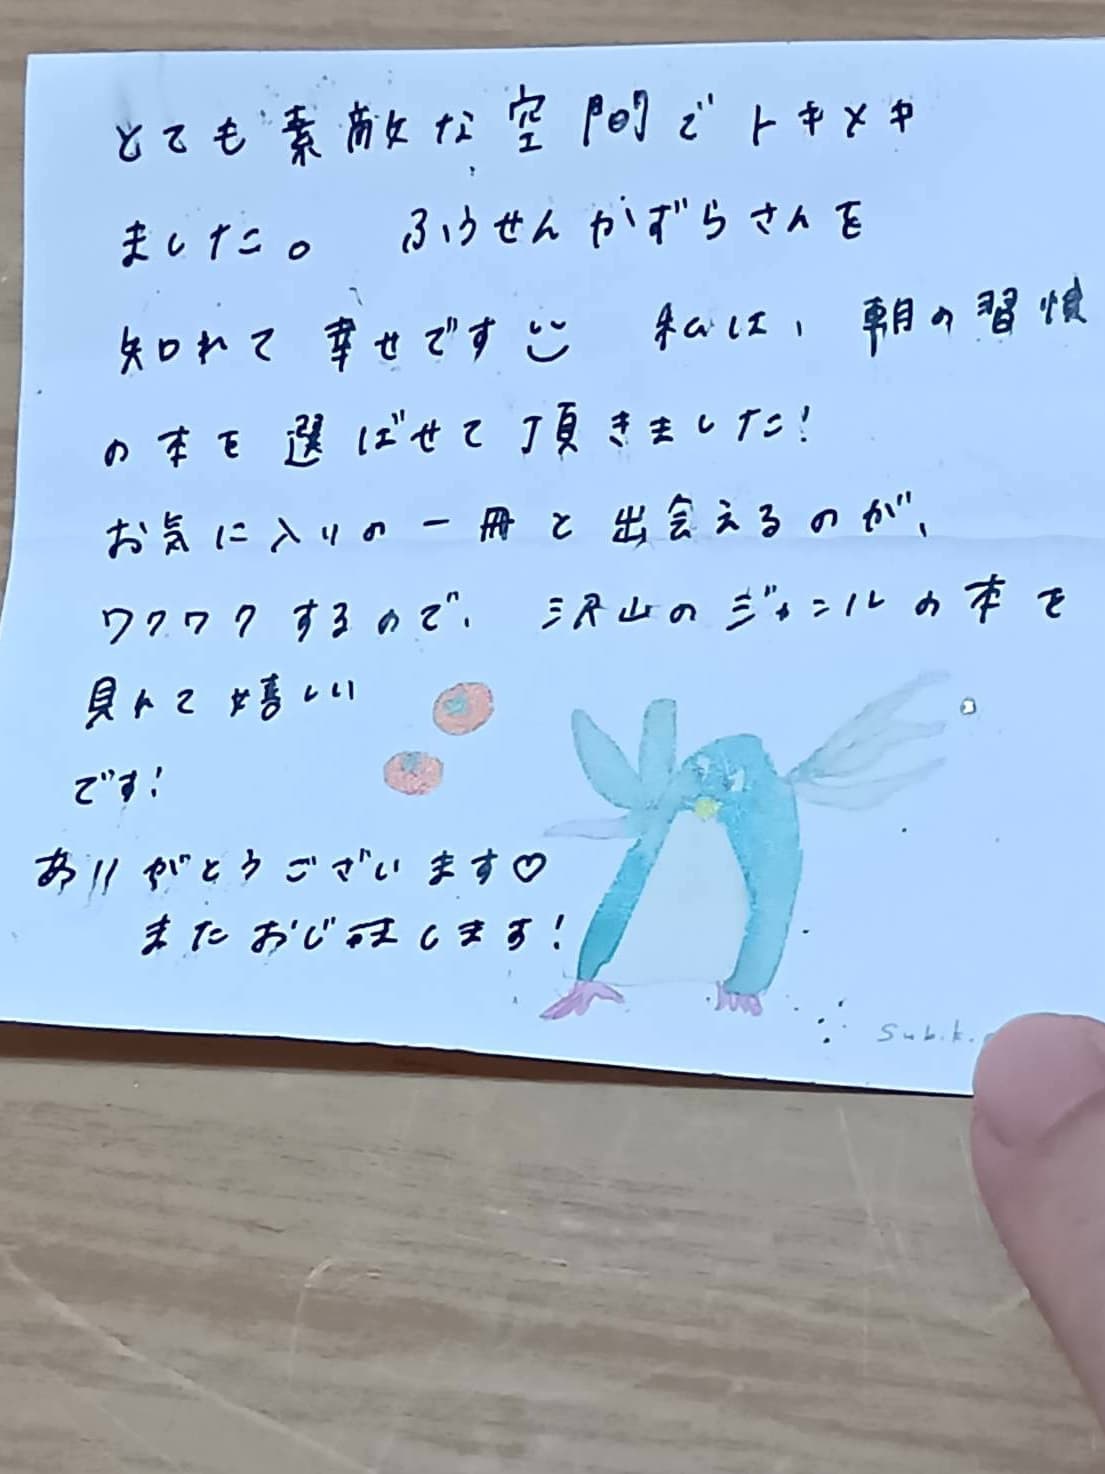 とても素敵な空間でトキメキ
ました。 ふうせんかずらさんを
知れて幸せです 私は、朝の習慣
の本を選ばせて頂きました!
お気に入りの一冊と出会えるのが、
ワクワクするので、沢山のジャンルの本を
見れて嬉しい
です!
ありがとうございます♡
またおじゃまします!